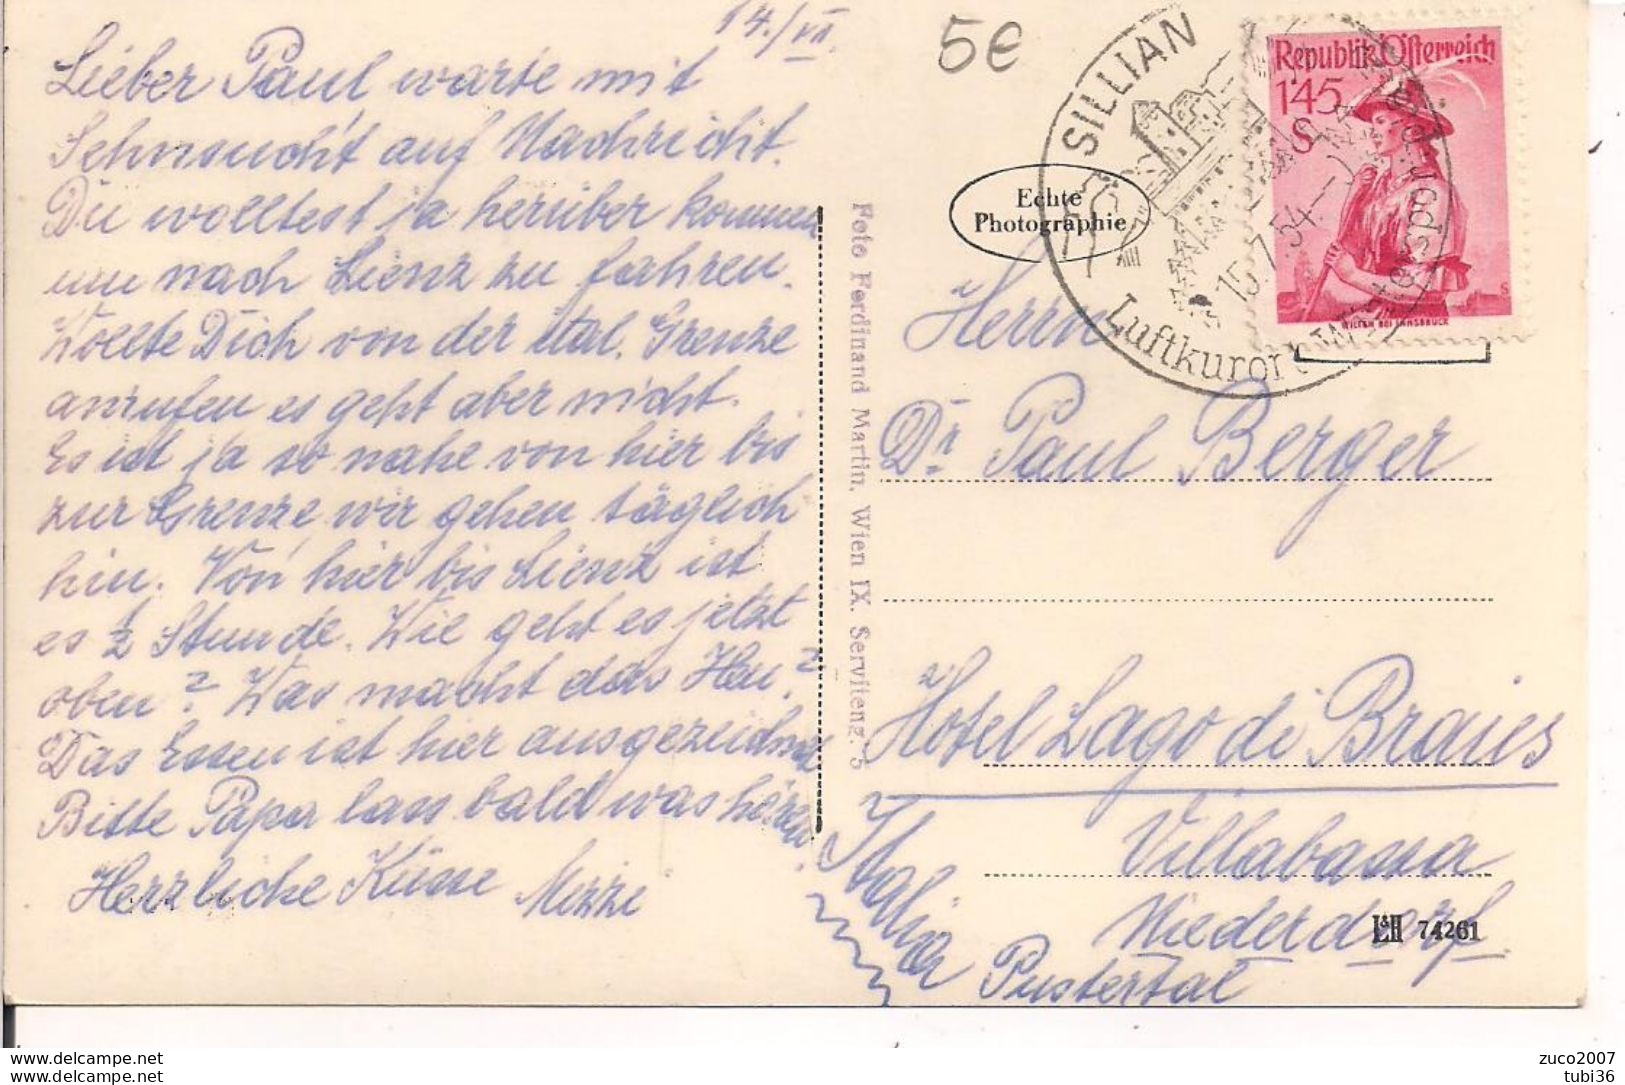 14./VII.
Lieber Paul warte mit
Sehnsucht auf Nachricht.
Du wolltest ja herüber kommen
um nach Lienz zu fahren.
Wollte Dich von der ital. Grenze
anrufen es geht aber nicht.
Es ist ja so nahe von hier bis
zur Grenze, wir gehen täglich
hin. Von hier bis Lienz ist
es ½ Stunde. Wie geht es jetzt
oben? Was macht das Heu?
Das Essen ist hier ausgezeichnet
Bitte Papa lass bald was hören.
Herzliche Küsse Mizzi
Foto Ferdinand Martin, Wien IX. Serviteng. 5
5€
Echte
Photographie
SILLIAN
15.7.54.
Luftkurort
Republik Österreich
1'45
S
WILTEN BEI INNSBRUCK
Herrn
Dr Paul Berger
Hotel Lago di Braies
Villabassa
Niederdorf
Pustertal
Italia
74261
delcampe.net
delcampe.net
zuco2007
tubi36